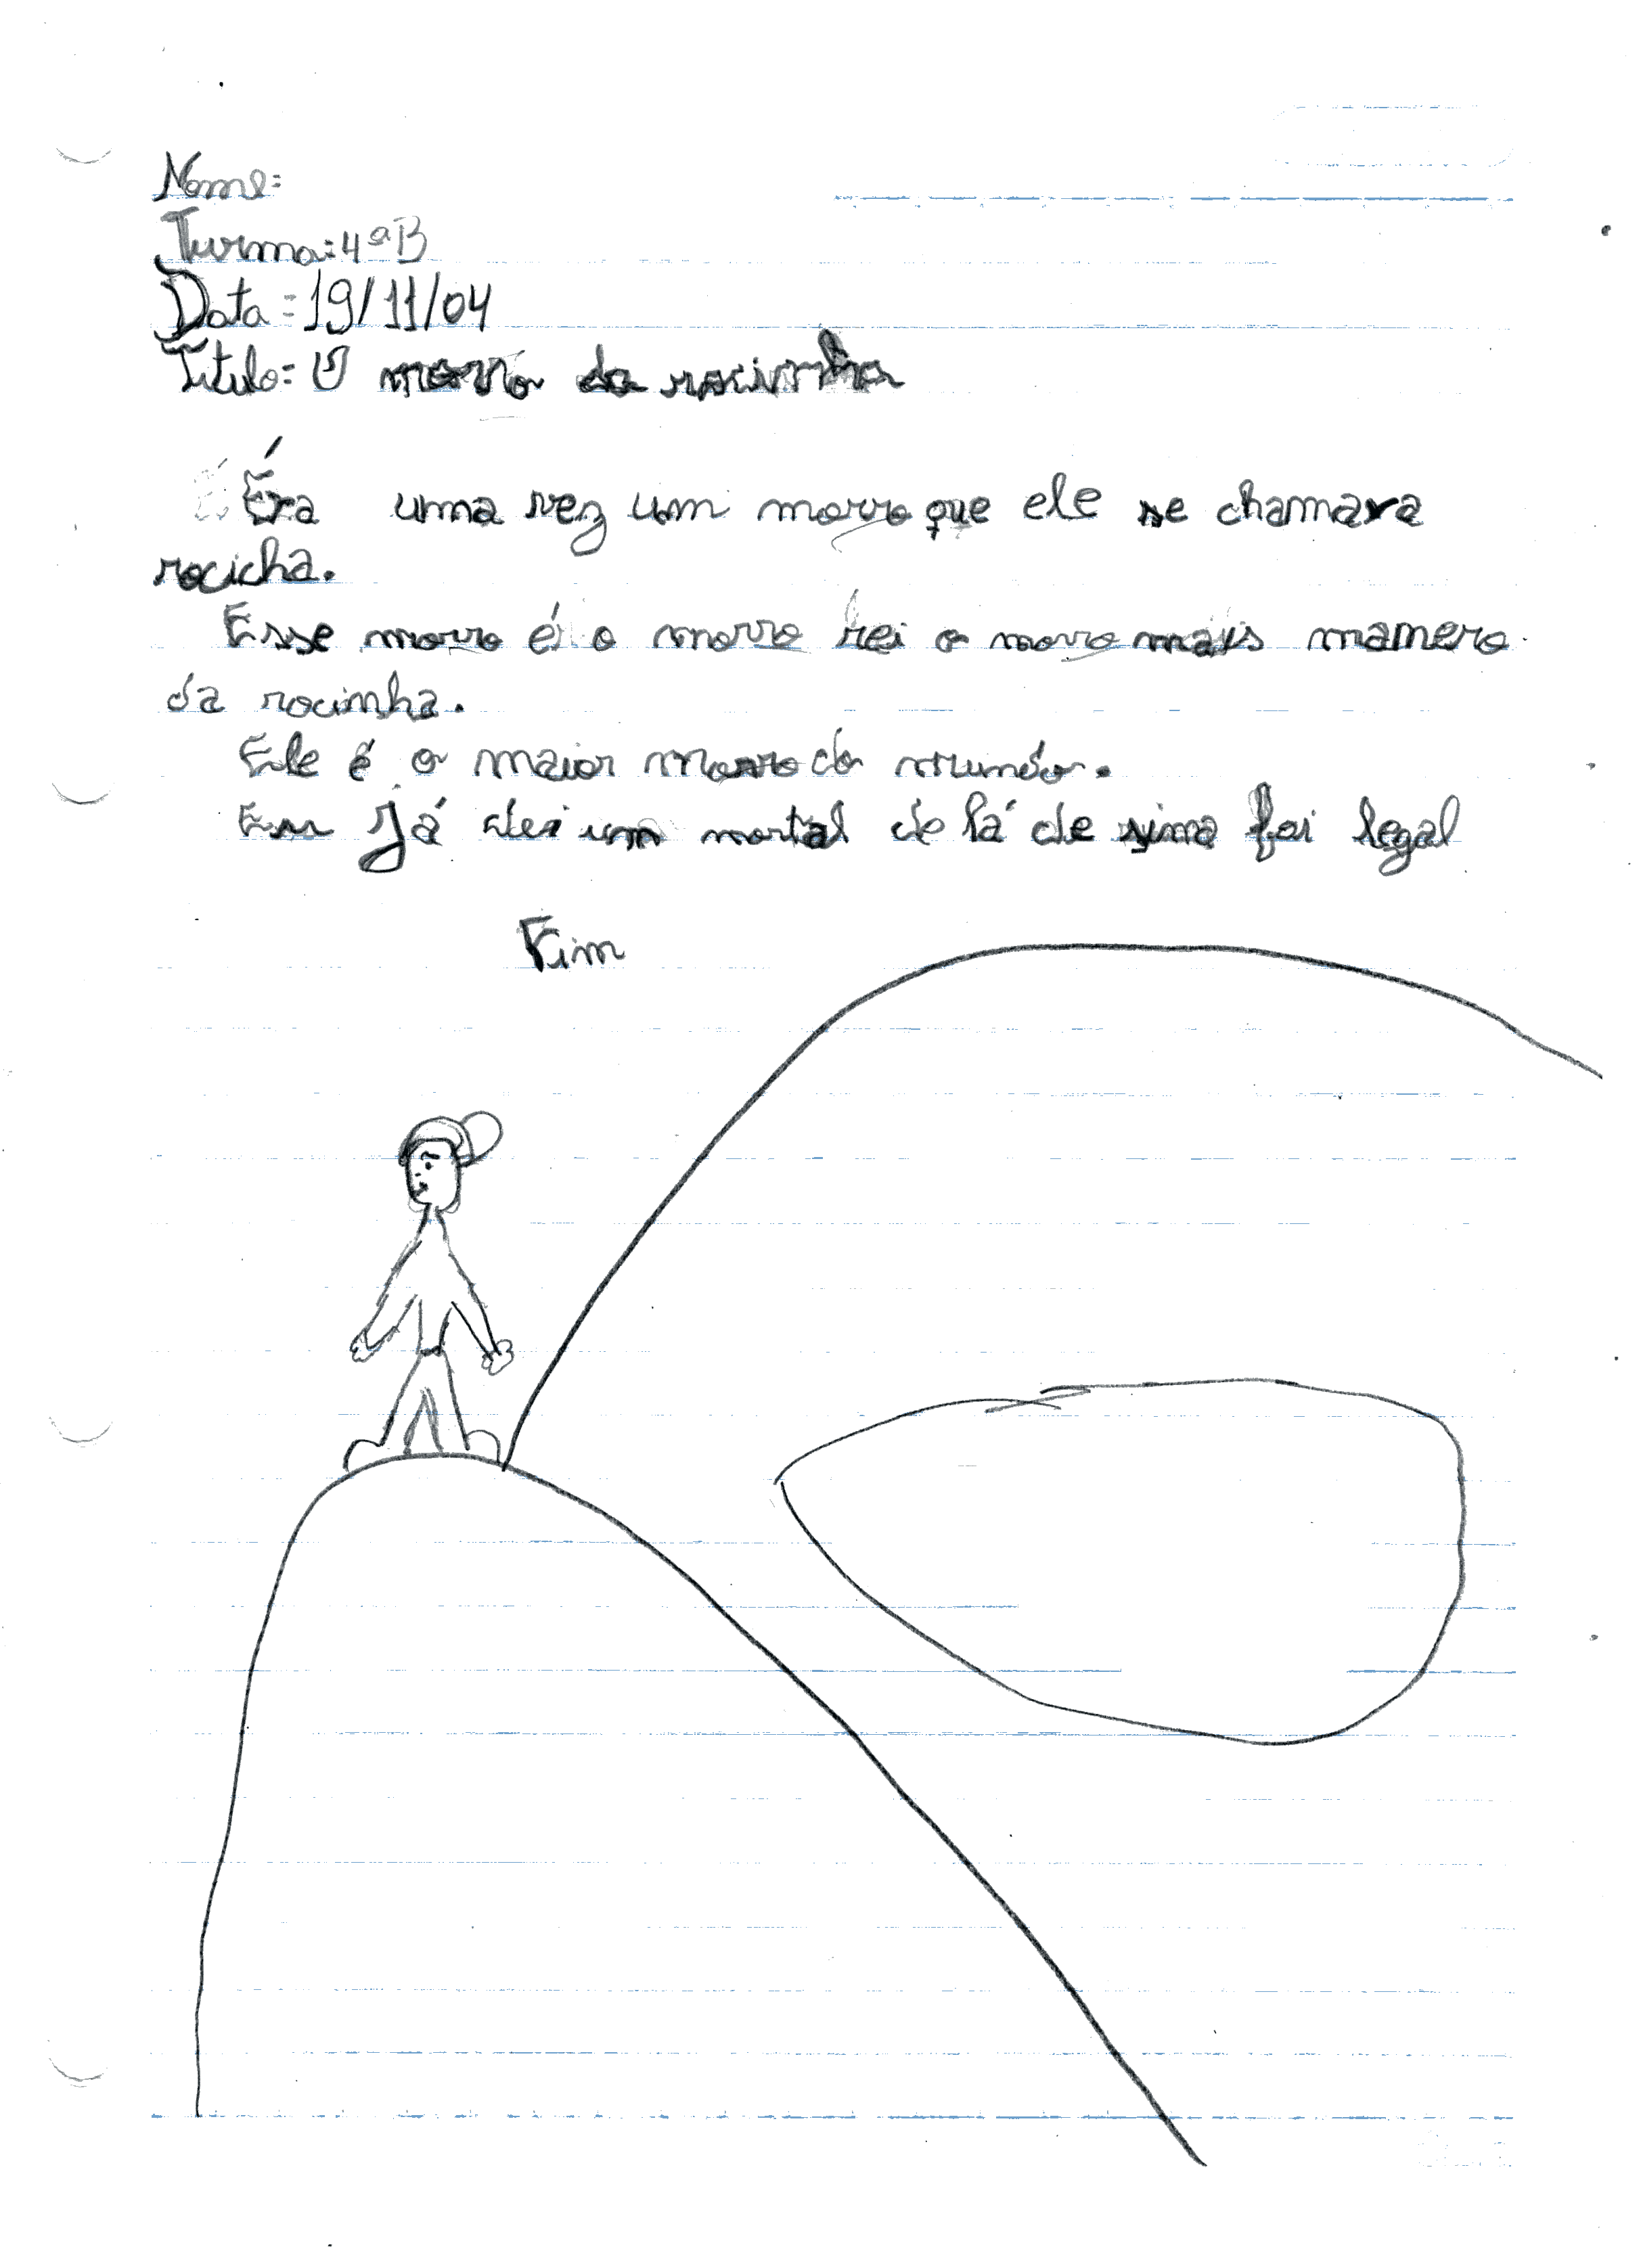 Nome:
Turma: 4ª B
Data: 19/11/04
Título: O morro da rocinha
Éra uma vez um morro que ele se chamava
rocicha.
Esse morro é o morro rei o morro mais manero
da rocinha.
Ele é o maior morro do mundo.
Eu já dei um mortal de lá de sima foi legal
Fim